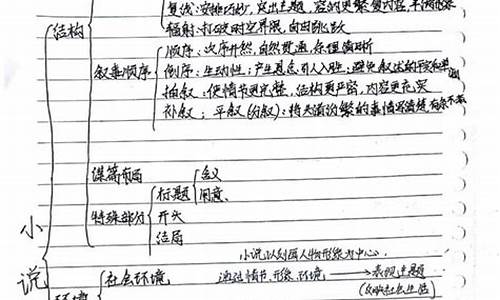 复线：安排巧妙，突出主题，容纳更繁复内容，丰满
结构
辐射：打破时空界限，自由跳跃
顺序：次序井然，自然贯通，条理清晰
叙事顺序
倒序：生动性；产生悬念，引人入胜；避免叙述的平
插叙：使情节更完整，结构更严密，内容更充实
补叙：平叙(分叙)：将头绪纷繁的事情写清楚，有条不紊
谋篇布局
标题
含义
用意
特殊部分
开头
结局
小说
小说以刻画人物形象为中心
社会环境
通过情节、形象、环境
表现主题
(反映社会生活)
环境